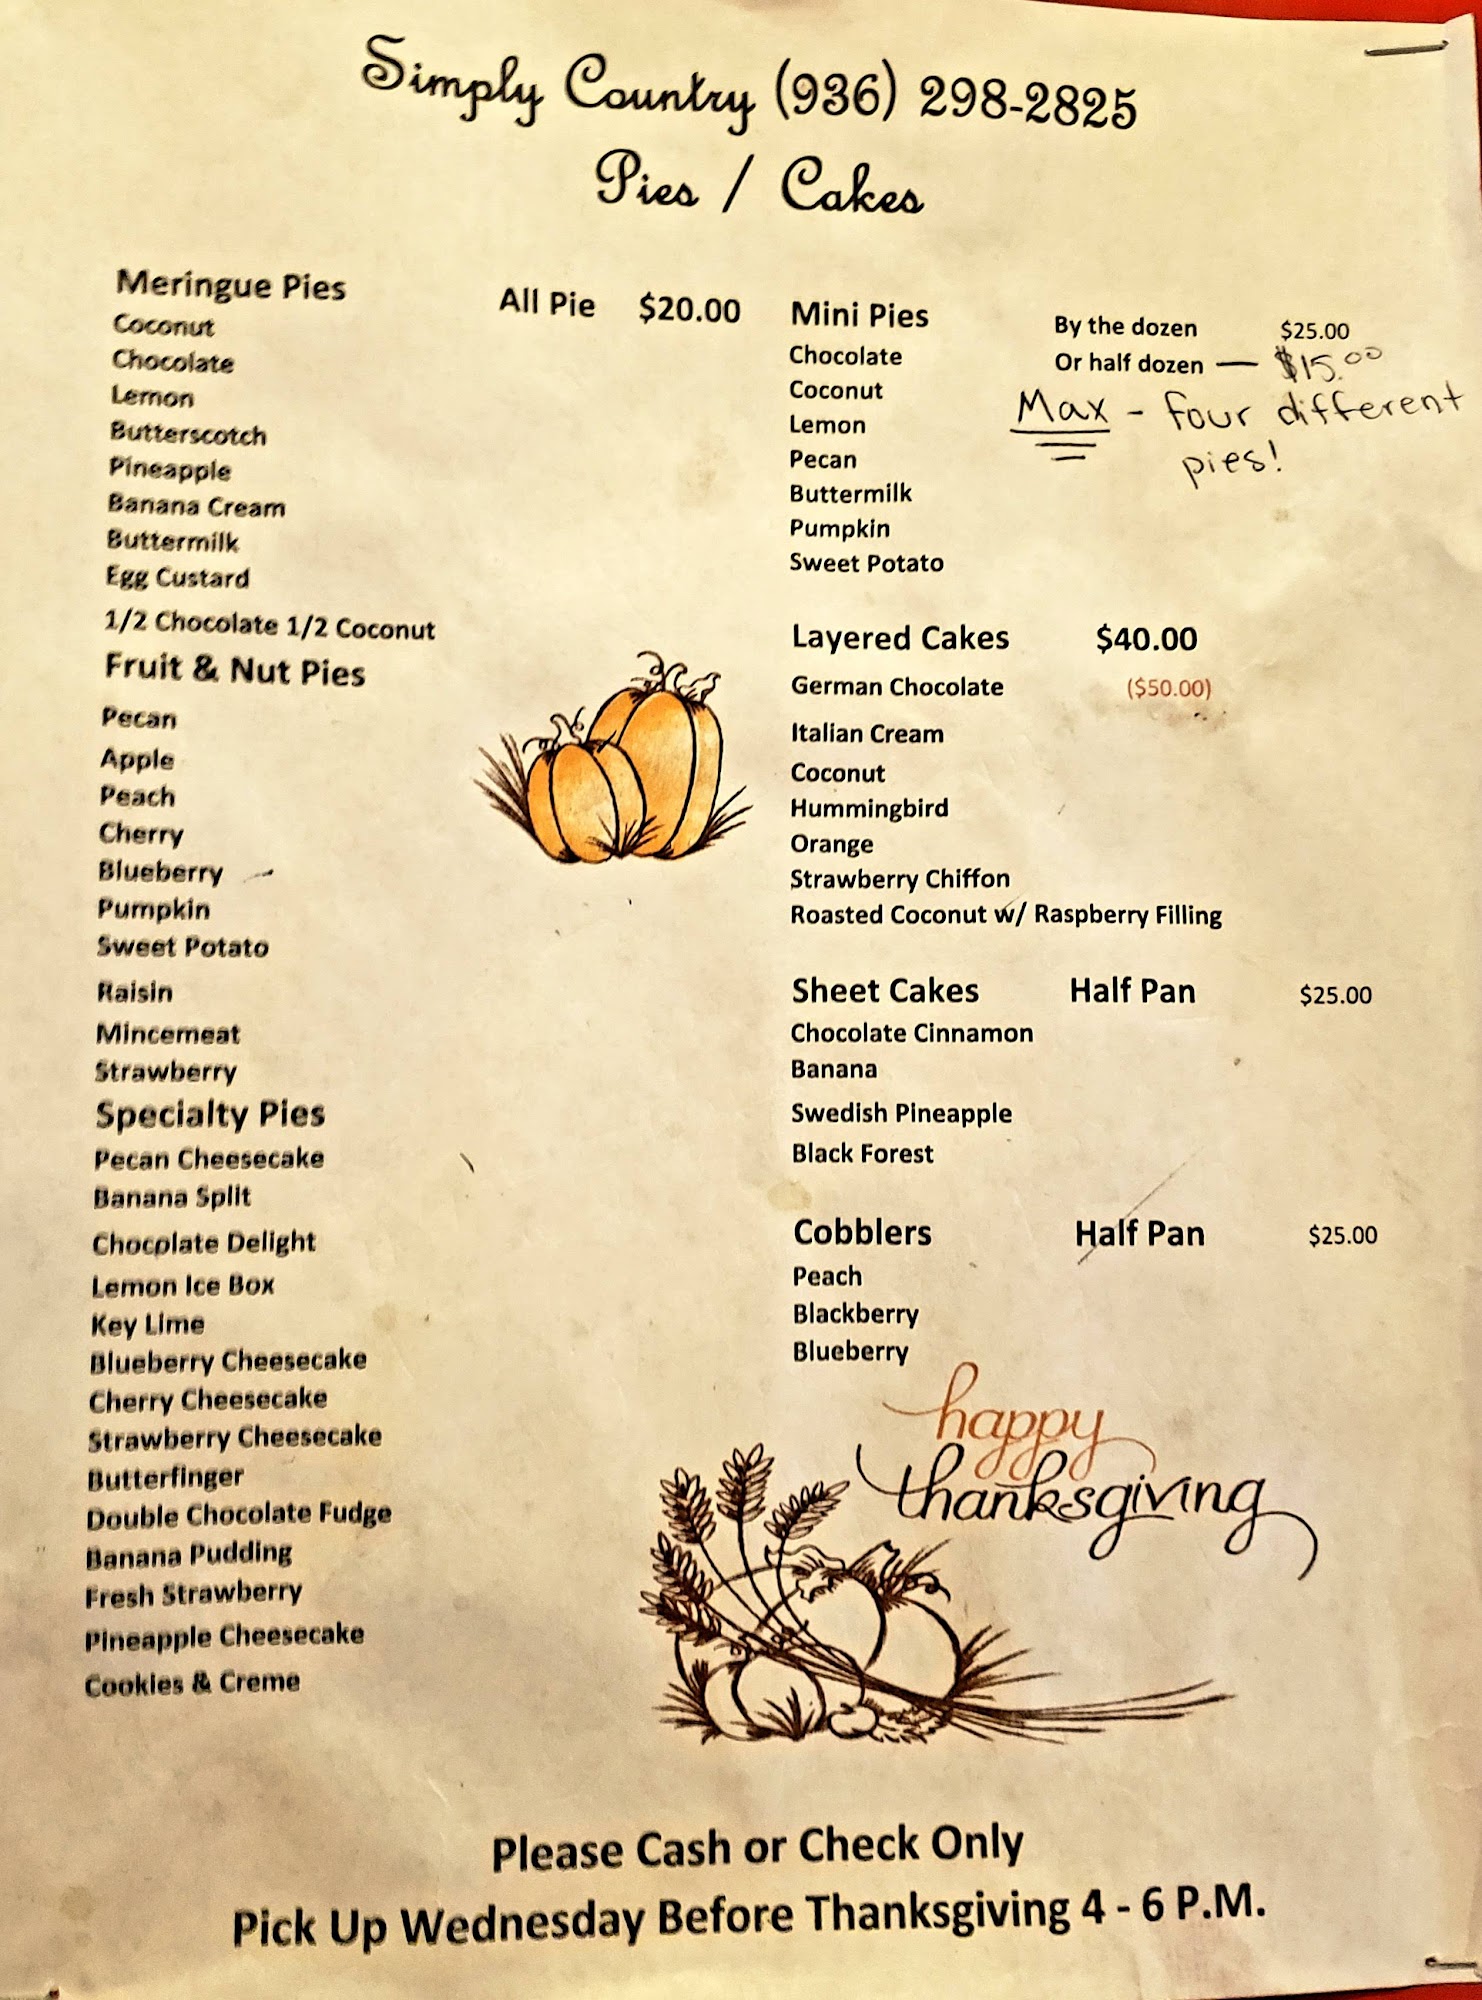 Simply Country (936) 298-2825
Pies / Cakes
Meringue Pies
All Pie $20.00
Coconut
Chocolate
Lemon
Butterscotch
Pineapple
Banana Cream
Buttermilk
Egg Custard
1/2 Chocolate 1/2 Coconut
Fruit & Nut Pies
Pecan
Apple
Peach
Cherry
Blueberry
Pumpkin
Sweet Potato
Raisin
Mincemeat
Strawberry
Specialty Pies
Pecan Cheesecake
Banana Split
Chocolate Delight
Lemon Ice Box
Key Lime
Blueberry Cheesecake
Cherry Cheesecake
Strawberry Cheesecake
Butterfinger
Double Chocolate Fudge
Banana Pudding
Fresh Strawberry
Pineapple Cheesecake
Cookies & Creme
Mini Pies
By the dozen $25.00
Or half dozen — $15.00
Max - four different
pies!
Chocolate
Coconut
Lemon
Pecan
Buttermilk
Pumpkin
Sweet Potato
Layered Cakes $40.00
German Chocolate ($50.00)
Italian Cream
Coconut
Hummingbird
Orange
Strawberry Chiffon
Roasted Coconut w/ Raspberry Filling
Sheet Cakes Half Pan $25.00
Chocolate Cinnamon
Banana
Swedish Pineapple
Black Forest
Cobblers Half Pan $25.00
Peach
Blackberry
Blueberry
happy
thanksgiving
Please Cash or Check Only
Pick Up Wednesday Before Thanksgiving 4 - 6 P.M.